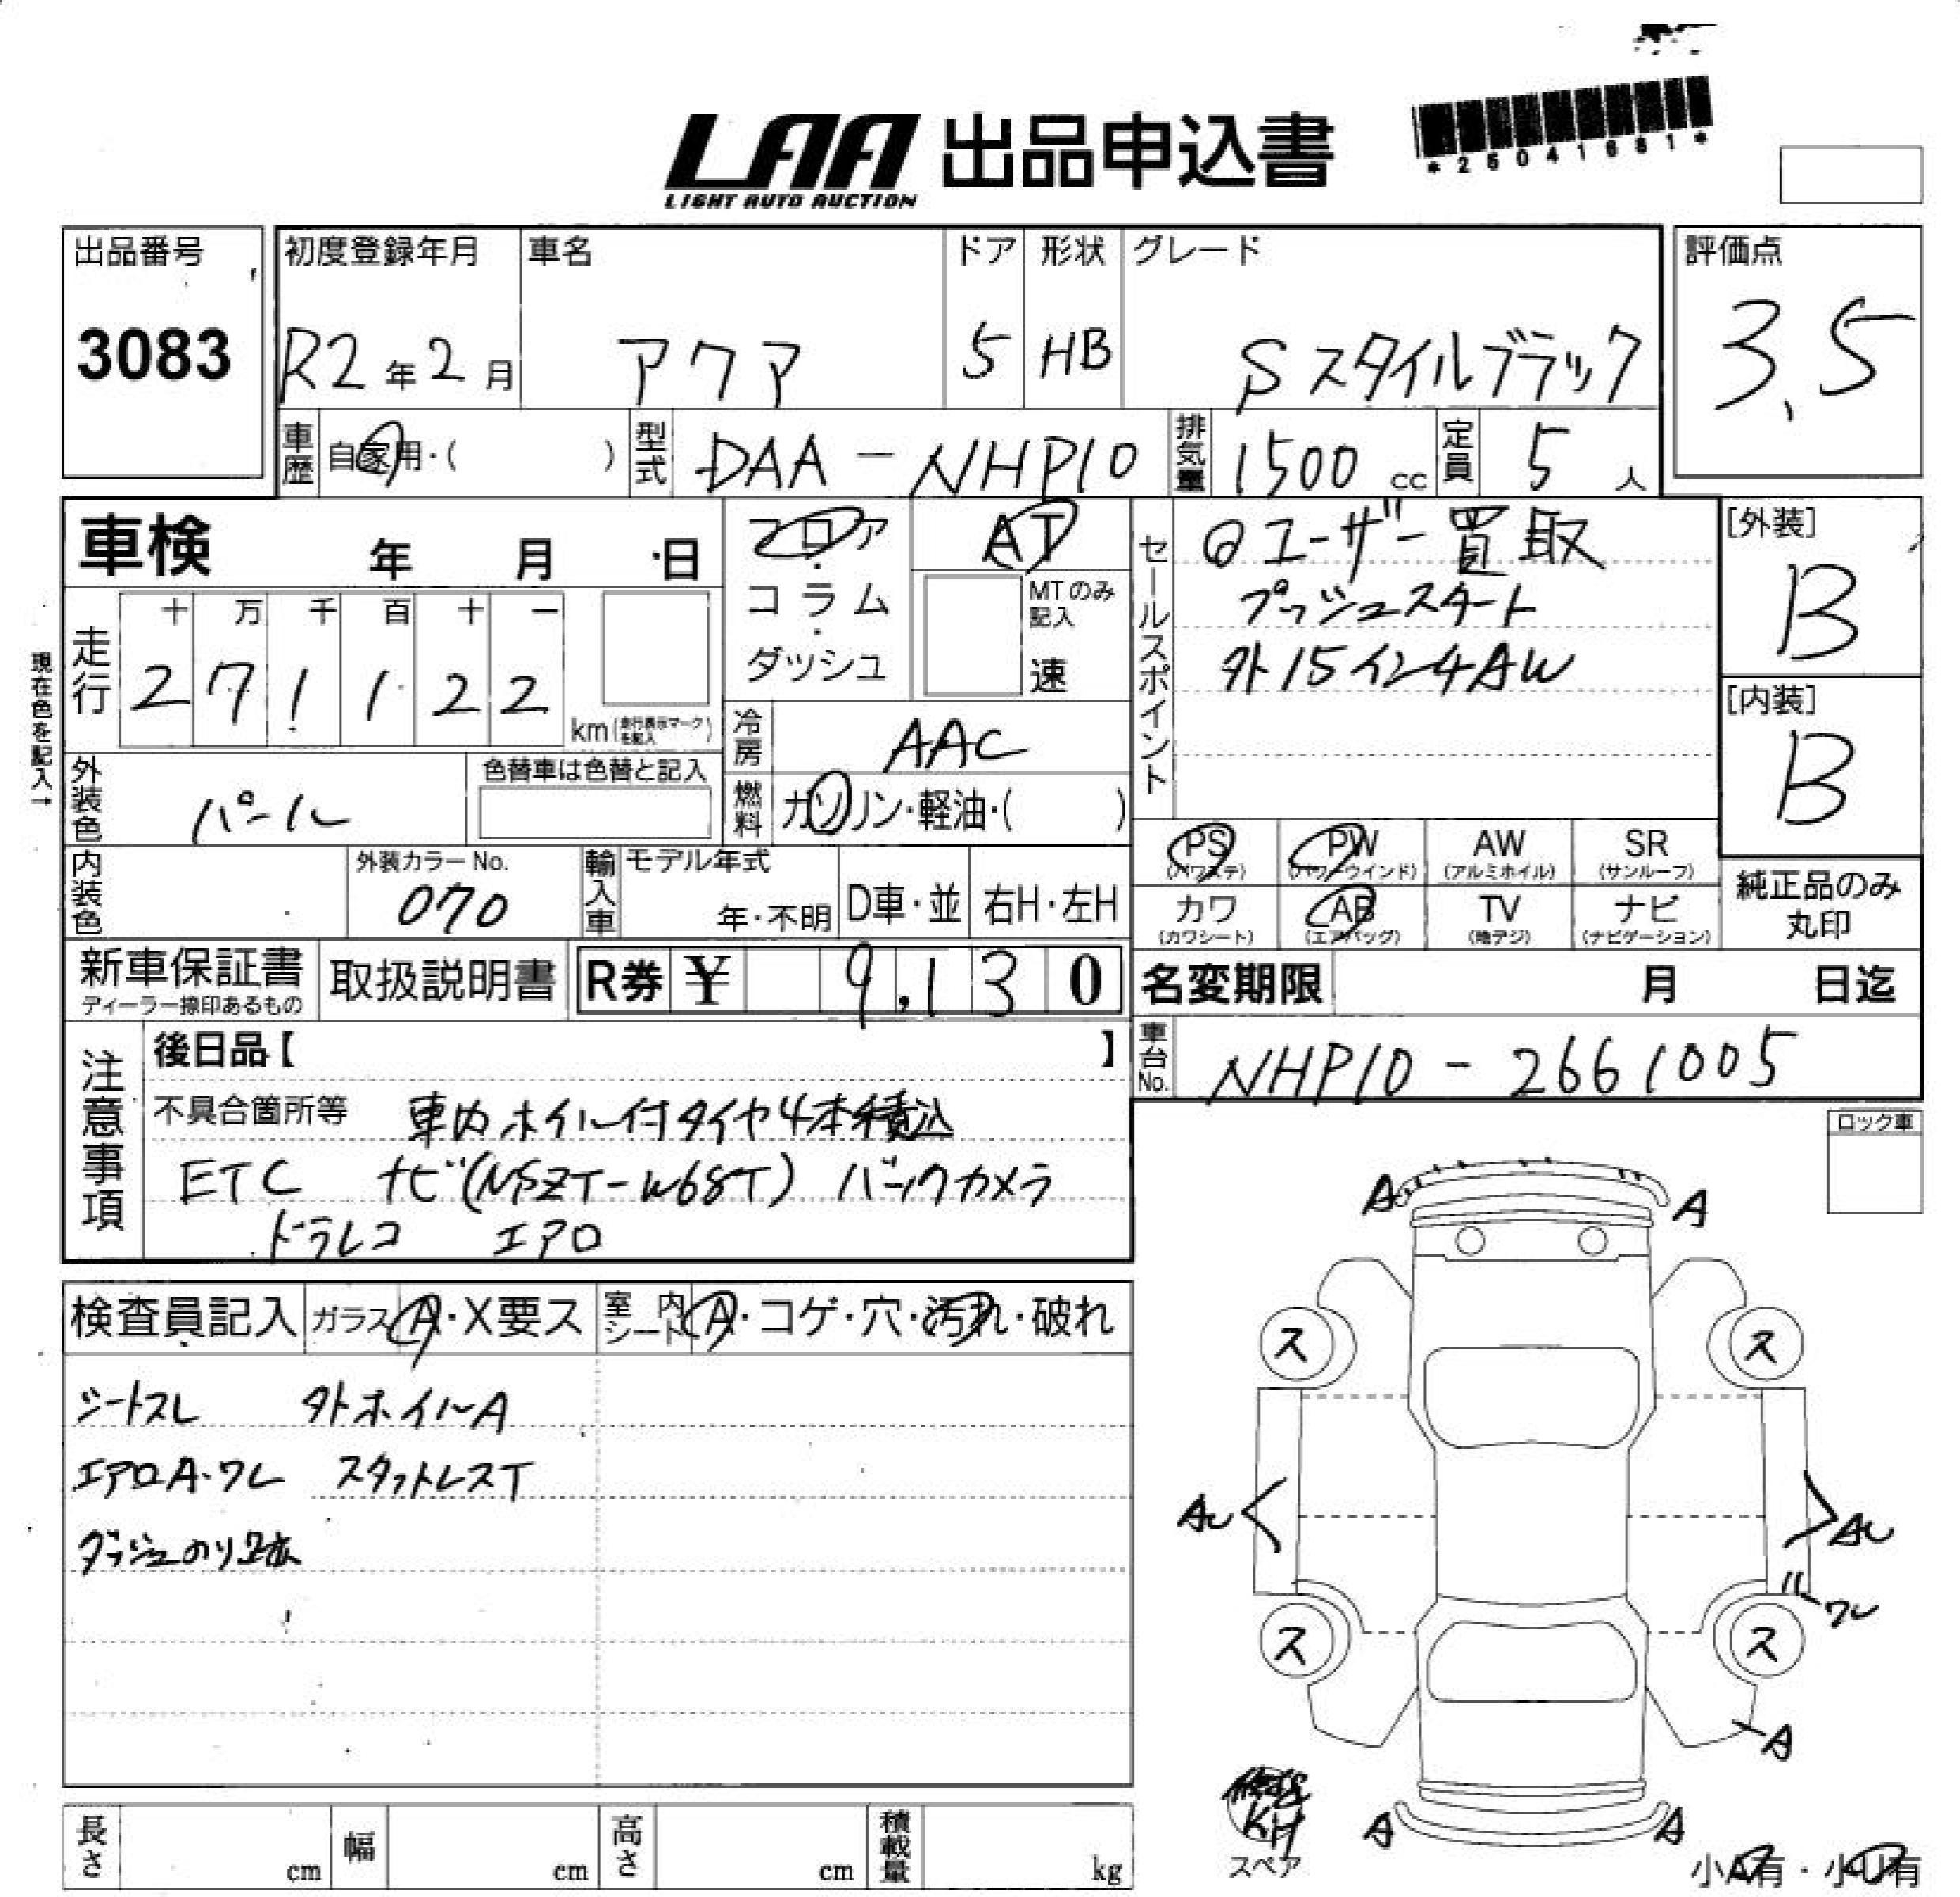 LAA 出品申込書
LIGHT AUTO AUCTION
*25041681*
出品番号
3083
初度登録年月
R2年2月
車名
アクア
ドア
5
形状
HB
グレード
Sスタイルブラック
評価点
3.5
車歴
自家用・( )
型式
DAA-NHP10
排気量
1500 cc
定員
5 人
車検 年 月 日
フロア・コラム・ダッシュ
AT
MTのみ記入
速
セールスポイント
ユーザー買取
プッシュスタート
外15インチAW
[外装]
B
[内装]
B
現在色を記入→
走行
十 万 千 百 十 一
2 7 1 1 2 2
km(走行表示マークを記入)
冷房
AAC
外装色
パール
色替車は色替と記入
燃料
ガソリン・軽油・( )
PS
(パワステ)
PW
(パワーウインド)
AW
(アルミホイル)
SR
(サンルーフ)
内装色
外装カラーNo.
070
輸入車
モデル年式
年・不明
D車・並
右H・左H
カワ
(カワシート)
AB
(エアバッグ)
TV
(地デジ)
ナビ
(ナビゲーション)
純正品のみ
丸印
新車保証書
ディーラー捺印あるもの
取扱説明書
R券 ¥ 9,130
名変期限 月 日迄
車台No.
NHP10-2661005
注意事項
後日品【 】
不具合箇所等 車内ホイル付タイヤ4本積込
ETC ナビ(NSZT-W68T) バックカメラ
ドラレコ エアロ
ロック車
検査員記入
ガラス A・X要ス
室内シート A・コゲ・穴・汚れ・破れ
シートスレ 外ホイルA
エアロA・ワレ スタットレスT
ダッシュのり
A A
ス ス
AU AU
ワレ
ス ス
A
A A
KH
スペア
小A有・小U有
長さ cm
幅 cm
高さ cm
積載量 kg